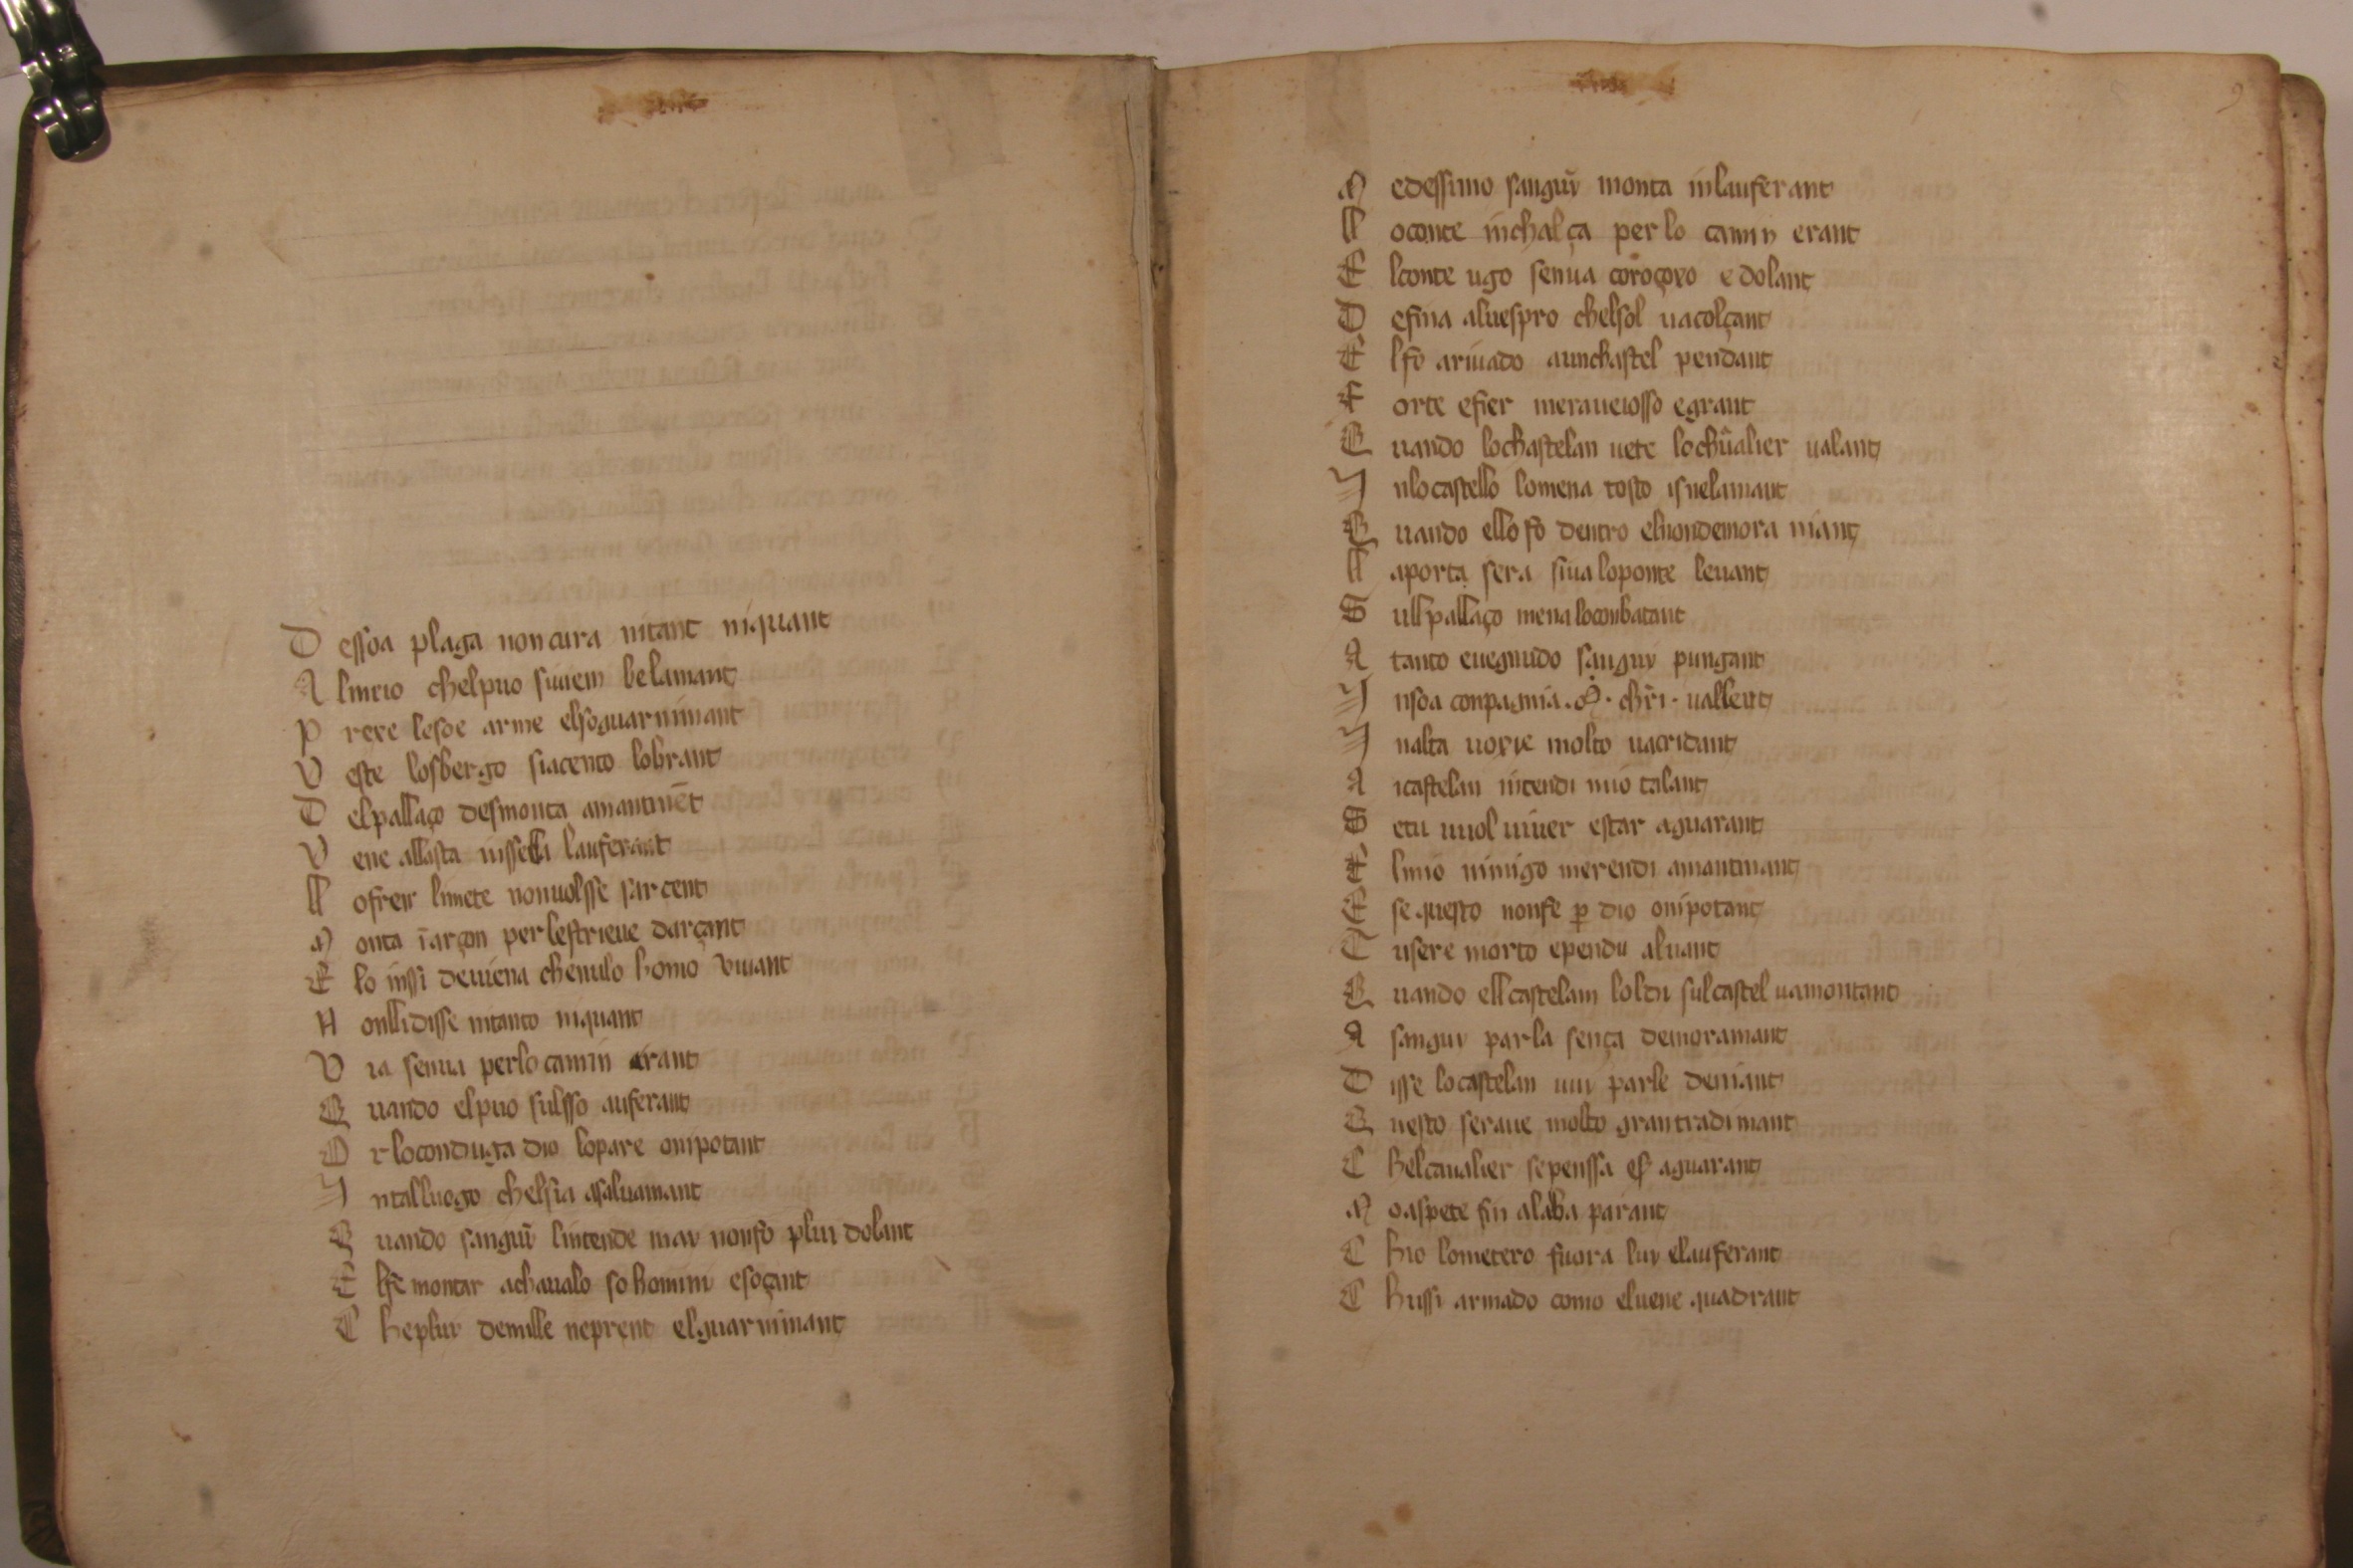 D essoa plaga non cura nitant niquant
A lmeio chelpuo siuien belamant
P rexe lesoe arme elsoguarnimant
V este losbergo siacento lobrant
D elpallaço desmonta amantinēt
V ene allasta inssella lauferant
L ofreir limete nonuolsse sarcent
M onta ī arçon perlestrieue darçant
E lo inssi deuiena chenulo homo viuant
N onllidisse nitanto niquant
V ia senua perlo camin erant
Q uando elpuo sulsso auferant
O r loconduga dio lopare onipotant
I ntalluogo chelsia asaluamant
Q uando sanguī lintende mai nonfo plui dolant
E lfe montar achaualo so homini esoçant
C heplui demille neprent elguarnimant
M edessimo sanguī monta inlauferant
L oconte inchalça perlo camin erant
E lconte ugo senua coroçoxo e dolant
D efina aluespro chelsol uacolçant
E lfo ariuado aunchastel pendant
F orte efier meraueiosso egrant
Q uando lochastelan uete lochūalier ualant
I nlocastello lomena tosto isnelamant
Q uando ello fo dentro elnondemora niant
L aporta sera siua loponte leuant
S ull pallaço mena locombatant
A tanto euegnudo sangui pungant
I nsoa conpagnia .M. chr̄i. uallent
I nalta uoxie molto uacridant
A icastelan intendi mio talant
S etu uuol uiuer estar aguarant
E lmio inimigo merendi amantinant
E se questo nonfe p̱ dio onipotant
T usere morto ependu aluant
Q uando ell castelam loldi sulcastel uamontant
A sangui parla sença demoramant
D isse locastelan uui parle deniant
Q uesto seraue molto grantradimant
C helcaualier sepenssa esser aguarant
M oaspete fin alaba parant
C hio lometero fuora lui elauferant
C hussi armado como eluene quadrant